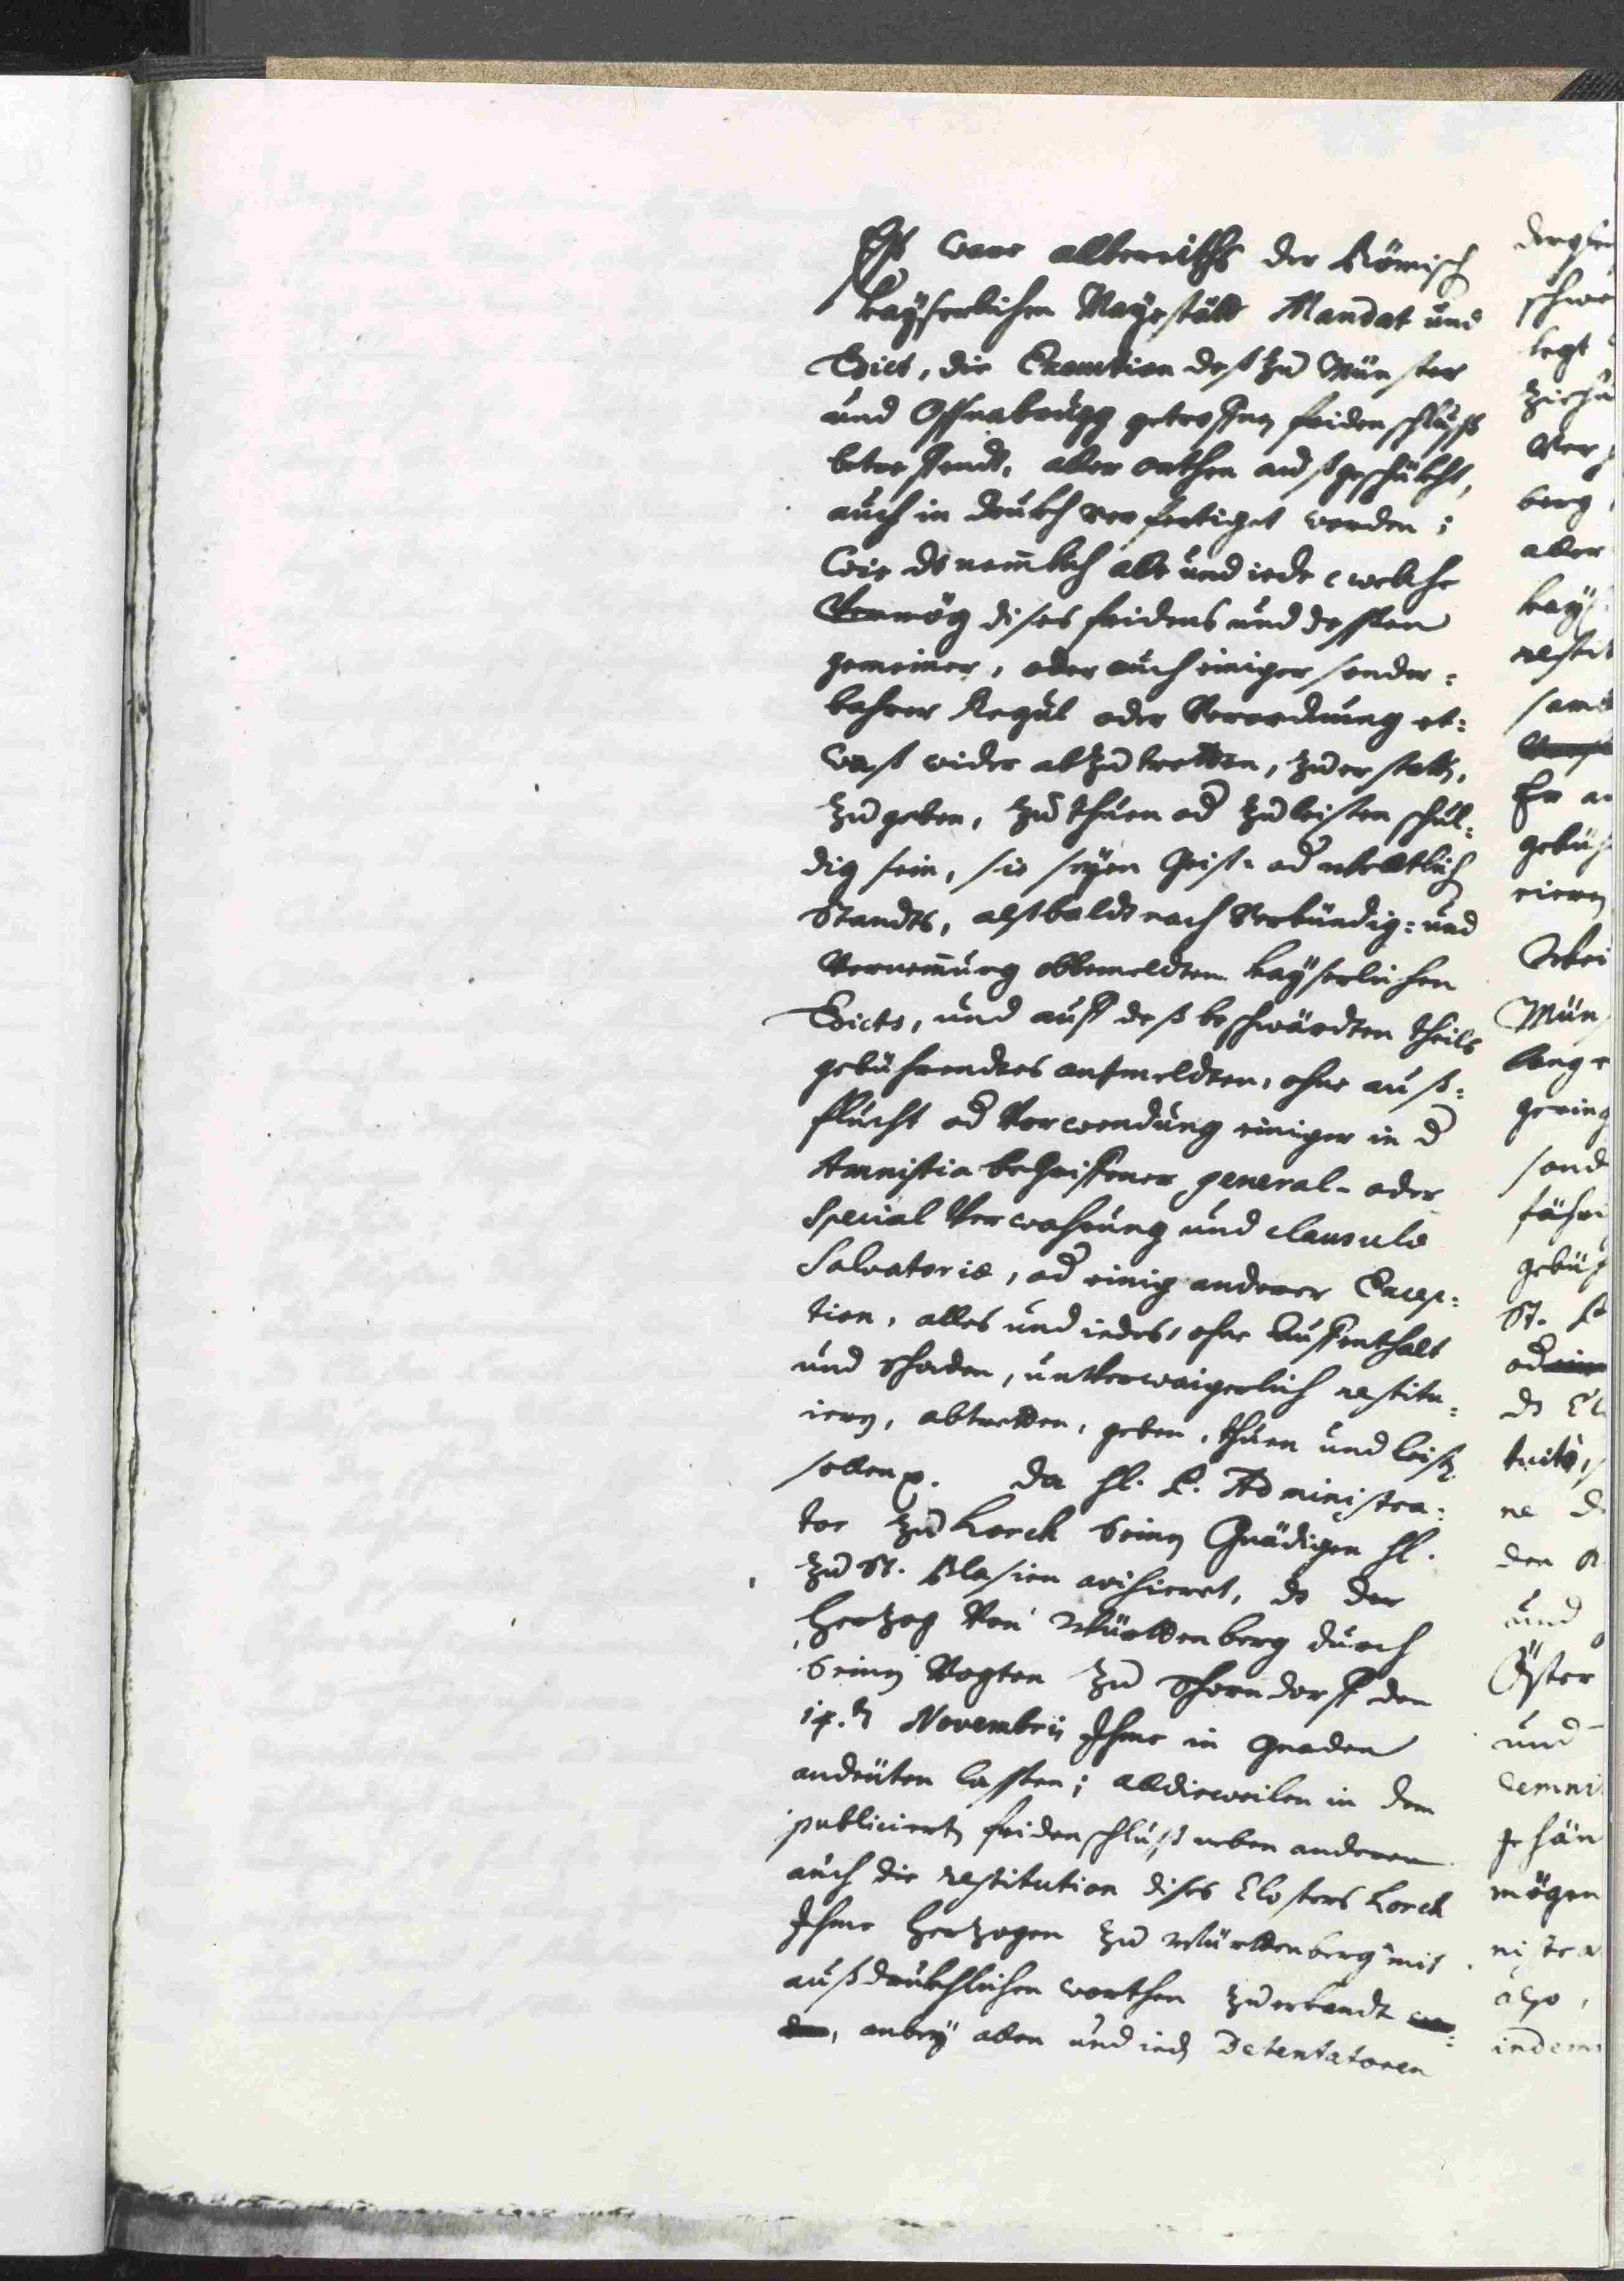 Es ware allbereiths der Römisch
Kayserlichen Mayestätt Mandat und
Edict, die Execution deß zu Münster
und Oßnabrugg getroffnen fridenschluß
betreffendt, aller orthen außgeschükht,
auch in drukh verfertiget worden;
Wie dz nemmblich alle und iede welche
Vermög dises fridens und dessen
gemeiner, oder auch einiger sonder=
bahrer Regul oder Verordnung et=
wast wider abzutretten, zuerstatten,
zu geben, zu thuen od zu leisten schul=
dig sein, sie seyen Geist- od weltlich
Standts, alßbaldt nach Verkündig= und
Vernemmung obbemeldten kayserlichen
Edicts, und auff deß beschwärdten theils
gebührendtes anmeldten, ohne auß=
flucht od Vorwendung einiger in d
Amnistia begriffener general- oder
Special Verwahrung und clausulæ
Salvatoriæ, od einig anderer Excep=
tion, alles und iedes, ohne Auffenthalt
und schaden, unverwaigerlich restitu=
ieren, abtretten, geben, thuen und leisten
sollen. Da hl. P. Administra=
tor zu Lorch seinen Gnädigen hl.
zu St. Blasien avisieret, dz der
Hertzog Von Württenberg durch
seinen Vogten zu Schorndorff den
14.ten Novembris Ihme in Gnaden
andeüten lassen; alldieweilen in dem
publicierten fridenschluß neben anderen
auch die restitution dises Closters Lorch
Ihme Hertzogen zu Württenberg mit
außdrukhlichen worthen zuerkandt
, anbey allen und ieden Detentatoren